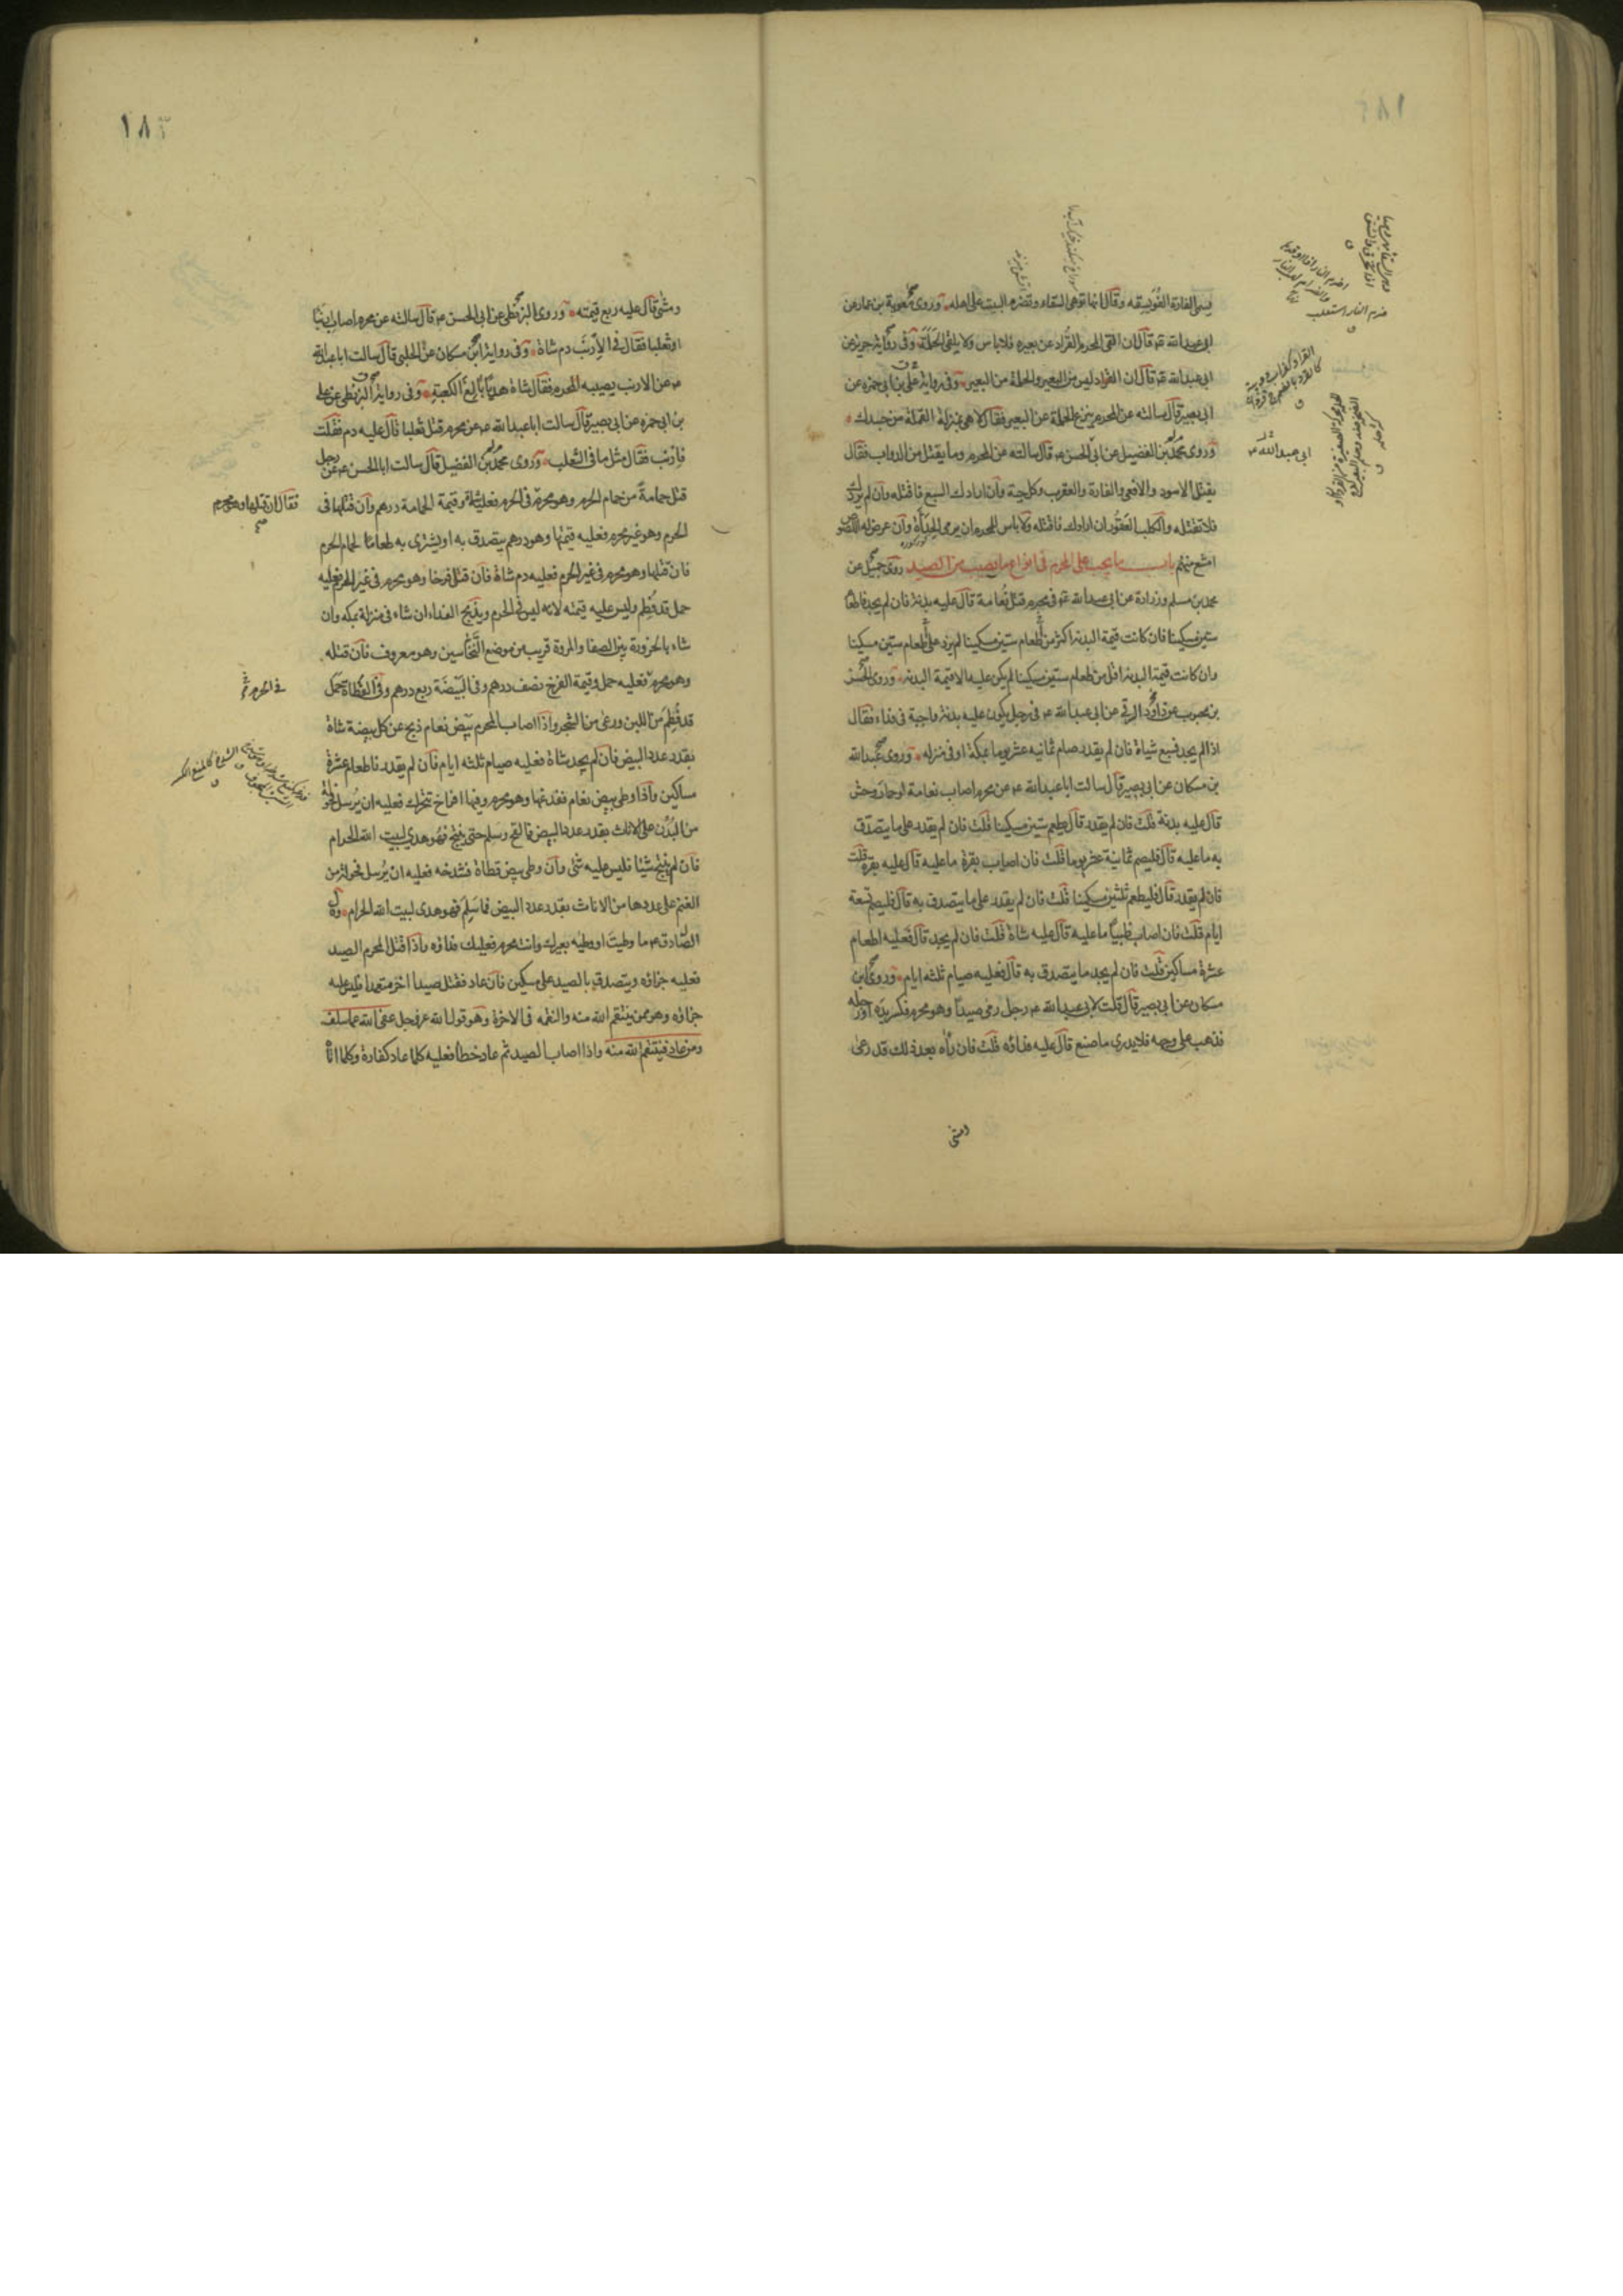 يسمى الفارة الفُوَيسِقه وقال انها توهى السقاء وتضرم البيت على اهله وروى معوية بن عمار عن
ابى عبد الله ع قال ان القى المحرم القُراد عن بعيره فلا باس ولا يلقى الحَلَمَة وفى رواية حريز عن
ابى عبد الله ع قال ان القراد ليس من البعير والحلمة من البعير وفى رواية على بن ابى حمزه عن
ابى بصير قال سالته عن المحرم ينزع الحلمة عن البعير فقال لا هى بمنزلة القملة من جسدك
وروى محمد بن الفضيل عن ابى الحسن ع قال سالته عن المحرم وما يقتل من الدواب فقال
يقتل الاسود والافعى والفارة والعقرب وكل حية وان ارادك السبع فاقتله وان لم يردك
فلا تقتله والكلب العَقُور ان ارادك فاقتله ولا باس للمحرم ان يرمى الحِدَأة وان عرض له اللصوص
امتنع منهم باب ما يجب على المحرم فى انواع ما يصيب من الصيد روى جميل عن
محمد بن مسلم وزرارة عن ابى عبد الله ع فى محرم قتل نُعامة قال عليه بدنة فان لم يجد فاطعام
ستين مسكينا فان كانت قيمة البدنة اكثر من طعام ستين مسكينا لم يزد على طعام ستين مسكينا
وان كانت قيمة البدنة اقل من طعام ستين مسكينا لم يكن عليه الا قيمة البدنه وروى الحسن
بن محبوب عن داوُد الرقى عن ابى عبد الله ع فى رجل يكون عليه بدنة واجبة فى فداء فقال
اذا لم يجد فسبع شياة فان لم يقدر صام ثمانيه عشر يوما بمكة او فى منزله وروى عبد الله
بن مسكان عن ابى بصير قال سالت ابا عبد الله ع عن محرم اصاب نعامة او حمار وحش
قال عليه بدنة قلت فان لم يقدر قال يطعم ستين مسكينا قلت فان لم يقدر على ما يتصدق
به ما عليه قال فليصم ثمانية عشر يوما قلت فان اصاب بقرة ما عليه قال عليه بقرة قلت
فان لم يقدر قال فليطعم ثلثين مسكينا قلت فان لم يقدر على ما يتصدق به قال فليصم تسعة
ايام قلت فان اصاب ظبيًا ما عليه قال عليه شاة قلت فان لم يجد قال فعليه اطعام
عشرة مساكين قلت فان لم يجد ما يتصدق به قال فعليه صيام ثلثه ايام وروى ابن
مسكان عن ابى بصير قال قلت لابى عبد الله ع رجل رمى صيدًا وهو محرم فكسر يده او رجله
فذهب على وجهه فلا يدرى ما صنع قال عليه فداؤه قلت فان رأه بعد ذلك قد رعى
ابى عبد الله ع
١٨٣
ومشى قال عليه ربع قيمته وروى البزنطى عن ابى الحسن ع قال سالته عن محرم اصاب ارنبًا
او ثعلبا فقال فى الارنب دم شاة وفى رواية ابن مسكان عن الحلبى قال سالت ابا عبد الله
ع عن الارنب يصيبه المحرم فقال شاة هديًا بالغ الكعبة وفى رواية البزنطى عن على
بن ابى حمزه عن ابى بصير قال سالت ابا عبد الله ع عن محرم قتل ثعلبا قال عليه دم فقلت
فارنب فقال مثل ما فى الثعلب وروى محمد بن الفضيل قال سالت ابا الحسن ع عن رجل
قتل حمامة من حمام الحرم وهو محرم فى الحرم فعليه شاة وقيمة الحمامة درهم وان قتلها فى
الحرم وهو غير محرم فعليه قيمتها وهو درهم يتصدق به او يشترى به طعامًا لحمام الحرم
فان قتلها وهو محرم فى غير الحرم فعليه دم شاة فان قتل فرخا وهو محرم فى غير الحرم فعليه
حمل قد فُطِم وليس عليه قيمته لانه ليس فى الحرم ويذبح الفداء ان شاء فى منزله بمكه وان
شاء بالحزورة بين الصفا والمروة قريب من موضع النَّخّاسين وهو معروف فان قتله
وهو محرم فعليه حمل وقيمة الفرخ نصف درهم وفى البَيضَة ربع درهم وفى القَطاة حَمَل
قد فُطِم من اللبن ورعى من الشجر واذا اصاب المحرم بَيض نعام ذبح عن كل بيضة شاة
بقدر عدد البيض فان لم يجد شاة فعليه صيام ثلثه ايام فان لم يقدر فاطعام عشرة
مساكين واذا وطى بيض نعام ففدغها وهو محرم وفيها افراخ تتحرك فعليه ان يُرسل فحولة
من البُدن على الاناث بقدر عدد البيض فما لقح وسلم حتى ينتج فهو هدى لبيت الله الحرام
فان لم ينتج شيئا فليس عليه شئ وان وطى بيض قطاة فشدخه فعليه ان يُرسل فحولة من
الغنم على عددها من الاناث بقدر عدد البيض فما سَلِم فهو هدى لبيت الله الحرام وقال
الصّادق ع ما وطيتَ او وطِيه بعيرك وانت محرم فعليك فداؤه واذا قتل المحرم الصيد
فعليه جزاؤه ويتصدق بالصيد على مسكين فان عاد فقتل صيدا اخر متعمدا فليس عليه
جزاؤه وهو ممن ينتقم الله منه والنقمه فى الاخرة وهو قول الله عز وجل عفى الله عما سلف
ومن عاد فينتقم الله منه واذا اصاب الصيد ثم عاد خطأ فعليه كلما عاد كفارة وكلما اتى
فقال ان قتلها وهو محرم
فى الحرم